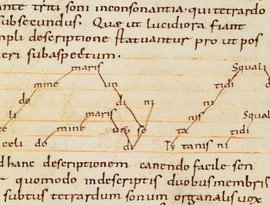 ante trti soni inconsonantia. qui tetrardo
subsecundus. Quę ut lucidiora fiant
mpli descriptione statuantur pro ut pos
eri subaspectum.
maris Squal
mine un tidi
do di ni Squali
li mine maris so ta tidi
celi do di Ty tanis ni
d hanc descriptionem canendo facile sen
r quomodo indescriptis duobus membris
subtus tetrardum sonum organalis vox